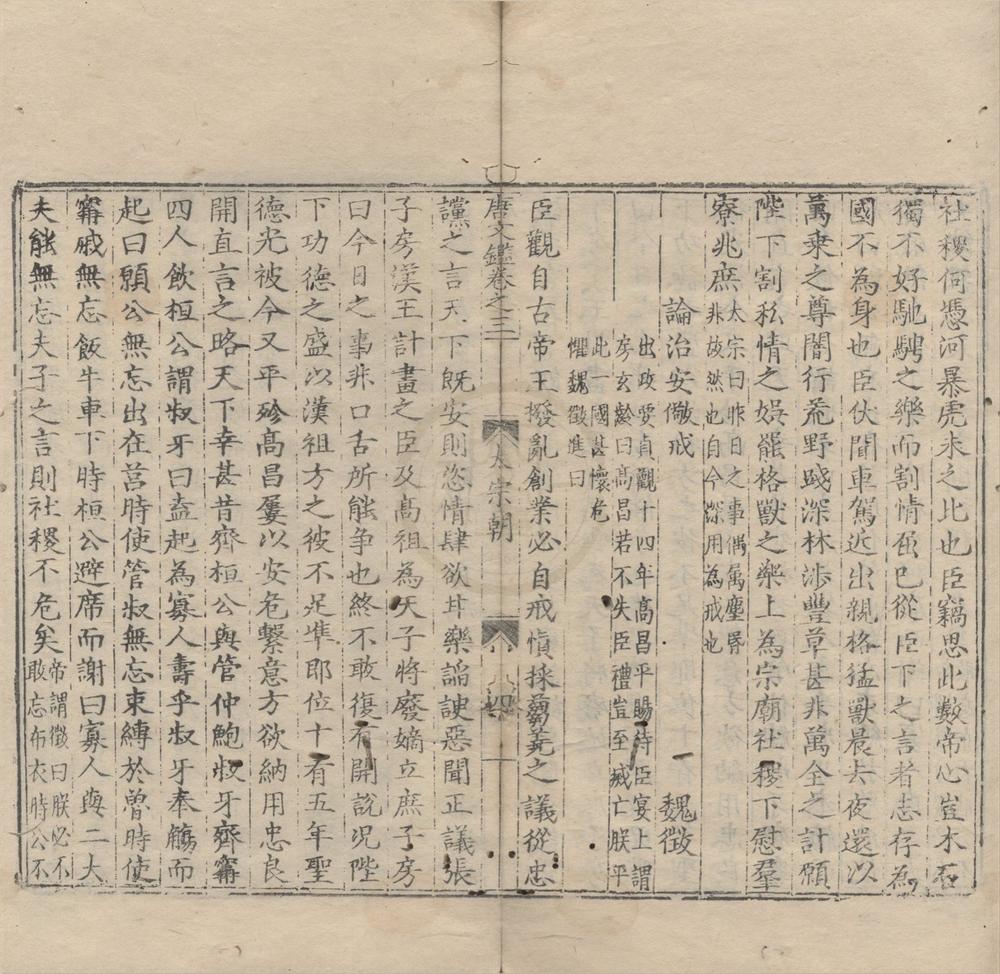 社稷何憑河暴虎未之比也臣竊思此數帝心豈木石
獨不好馳騁之樂而割情強己從臣下之言者志存為
國不為身也臣伏聞車駕近出親格猛獸晨去夜還以
萬乘之尊闇行荒野踐深林涉豐草甚非萬全之計願
陛下割私情之娛罷格獸之樂上為宗廟社稷下慰羣
寮兆庶太宗曰昨日之事偶属塵昏
非故然也自今深用為戒也
論治安儆戒
魏徵
出政要貞觀十四年髙昌平賜待臣宴上謂
房玄齡曰髙昌若不失臣禮豈至㓕亡朕平
此一國甚懷危
懼魏徵進曰
臣觀自古帝王撥亂創業必自戒愼採蒭蕘之議從忠
唐文鑑卷之三
太宗朝
八四
讜之言天下既安則恣情肆欲甘樂謟諛惡聞正議張
子房漢王計畫之臣及髙祖為天子將廢嫡立庶子房
曰今日之事非口舌所能争也終不敢復有開說况陛
下功德之盛以漢祖方之彼不足準即位十有五年聖
德光被今又平殄髙昌屢以安危繫意方欲納用忠良
開直言之路天下幸甚昔齊桓公與管仲鮑叔牙齊甯
四人飲桓公謂叔牙曰盍起為寡人壽乎叔牙奉觴而
起曰願公無忘出在莒時使管叔無忘束縛於魯時使
甯戚無忘飯牛車下時桓公避席而謝曰寡人與二大
夫能無忘夫子之言則社稷不危矣帝謂徵曰朕必不
敢忘布衣時公不